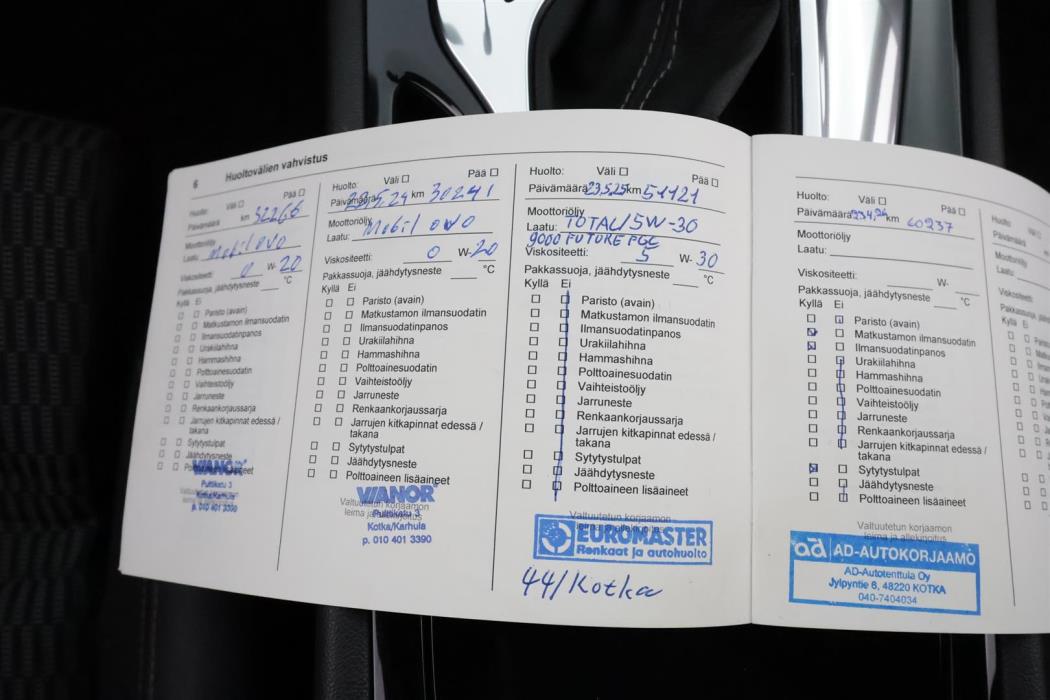 6 Huoltovälien vahvistus
Huolto: Väli ☐ Pää ☐
km 32266
Moottoriöljy
Mobil 0W0
0 W- 20
Pakkassuoja, jäähdytysneste °C
Kyllä Ei
☐ ☐ Paristo (avain)
☐ ☐ Matkustamon ilmansuodatin
☐ ☐ Ilmansuodatinpanos
☐ ☐ Urakiilahihna
☐ ☐ Hammashihna
☐ ☐ Polttoainesuodatin
☐ ☐ Vaihteistoöljy
☐ ☐ Jarruneste
☐ ☐ Renkaankorjaussarja
☐ ☐ Jarrujen kitkapinnat edessä /
takana
☐ ☐ Sytytystulpat
☐ ☐ Jäähdytysneste
VIANOR
Puttikatu 3
Kotka/Karhula
p. 010 401 3390
Huolto: Väli ☐ Pää ☐
Päivämäärä 29.5.24 km 30241
Moottoriöljy
Laatu: Mobil 0W0
Viskositeetti: 0 W- 20
Pakkassuoja, jäähdytysneste °C
Kyllä Ei
☐ ☐ Paristo (avain)
☐ ☐ Matkustamon ilmansuodatin
☐ ☐ Ilmansuodatinpanos
☐ ☐ Urakiilahihna
☐ ☐ Hammashihna
☐ ☐ Polttoainesuodatin
☐ ☐ Vaihteistoöljy
☐ ☐ Jarruneste
☐ ☐ Renkaankorjaussarja
☐ ☐ Jarrujen kitkapinnat edessä /
takana
☐ ☐ Sytytystulpat
☐ ☐ Jäähdytysneste
☐ ☐ Polttoaineen lisäaineet
VIANOR
Valtuutetun korjaamon
Puttikatu 3
Kotka/Karhula
p. 010 401 3390
Huolto: Väli ☐ Pää ☐
Päivämäärä 23.5.25 km 51121
Moottoriöljy
Laatu: TOTAL/5W-30
9000 FUTURE FGC
Viskositeetti: 5 W- 30
Pakkassuoja, jäähdytysneste °C
Kyllä Ei
☐ ☐ Paristo (avain)
☐ ☐ Matkustamon ilmansuodatin
☐ ☐ Ilmansuodatinpanos
☐ ☐ Urakiilahihna
☐ ☐ Hammashihna
☐ ☐ Polttoainesuodatin
☐ ☐ Vaihteistoöljy
☐ ☐ Jarruneste
☐ ☐ Renkaankorjaussarja
☐ ☐ Jarrujen kitkapinnat edessä /
takana
☐ ☐ Sytytystulpat
☐ ☐ Jäähdytysneste
☐ ☐ Polttoaineen lisäaineet
Valtuutetun korjaamon
leima ja allekirjoitus
EUROMASTER
Renkaat ja autohuolto
44/Kotka
Huolto: Väli ☐ Pää ☐
Päivämäärä 23.4.26 km 60237
Moottoriöljy
Laatu:
Viskositeetti: W-
Pakkassuoja, jäähdytysneste °C
Kyllä Ei
☐ ☐ Paristo (avain)
☒ ☐ Matkustamon ilmansuodatin
☒ ☐ Ilmansuodatinpanos
☐ ☐ Urakiilahihna
☐ ☐ Hammashihna
☐ ☐ Polttoainesuodatin
☐ ☐ Vaihteistoöljy
☐ ☐ Jarruneste
☐ ☐ Renkaankorjaussarja
☐ ☐ Jarrujen kitkapinnat edessä /
takana
☒ ☐ Sytytystulpat
☐ ☐ Jäähdytysneste
☐ ☐ Polttoaineen lisäaineet
Valtuutetun korjaamon
leima ja allekirjoitus
ad AD-AUTOKORJAAMO
AD-Autotenttula Oy
Jylpyntie 6, 48220 KOTKA
040-7404034
Huolto:
Päivämäärä
Moottoriöljy
Laatu:
Viskositeetti:
Kyllä Ei